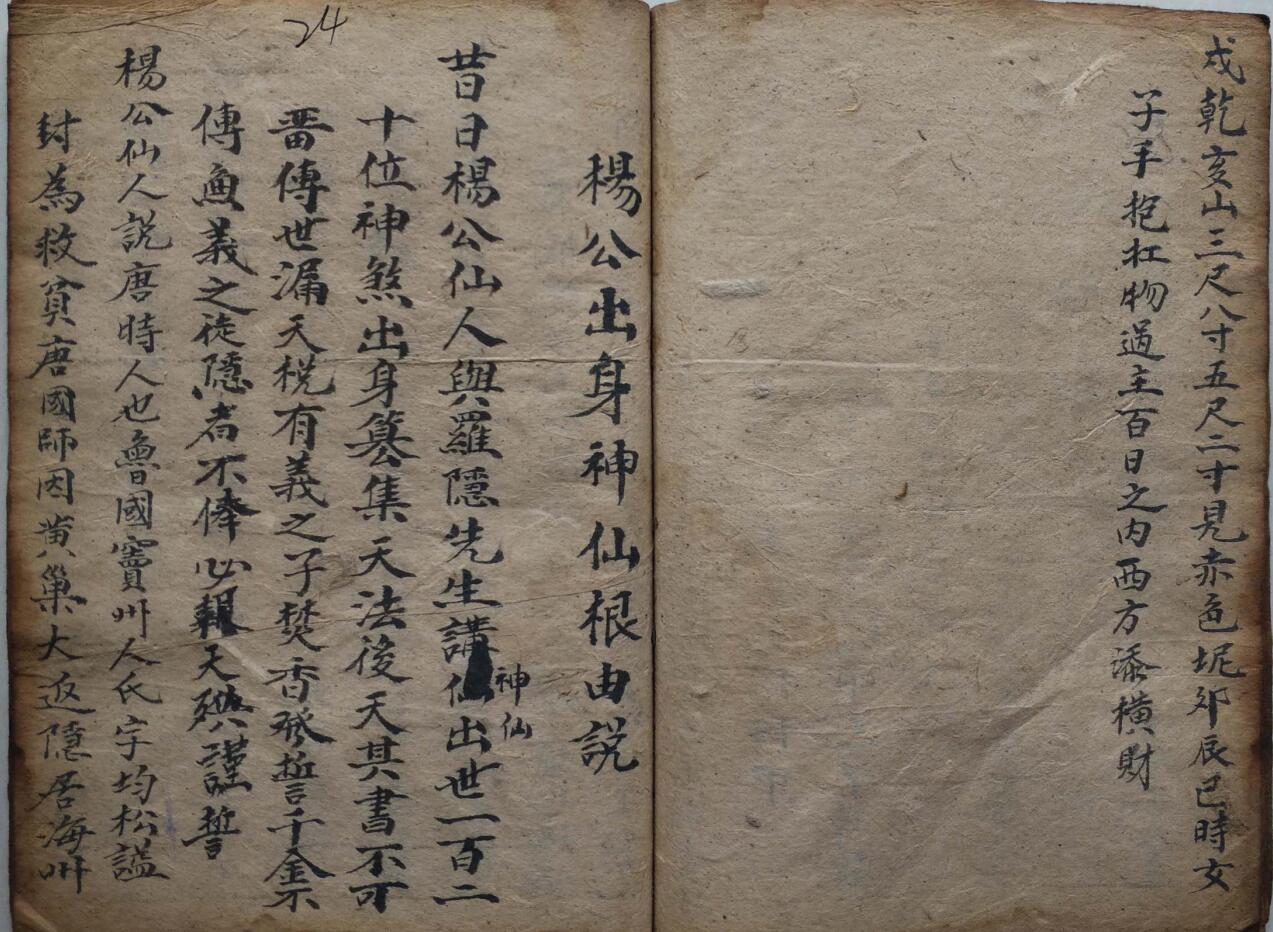 戍乾亥山三尺八寸五尺二寸見赤色坭夘辰巳時女
子手抱扛物過主百日之内西方添橫財
24
楊公出身神仙根由説
昔日楊公仙人與羅隱先生講仙出世一百二
神仙
十位神煞出身篡集天法後天其書不可
畨傳世漏天梲有義之子焚香發誓千金不
傳無義之徒隱者不俸必報天殃謹誓
楊公仙人説唐時人也魯國竇州人氏字均松謚
封為救貧唐國師因黄巢大返隱居海州